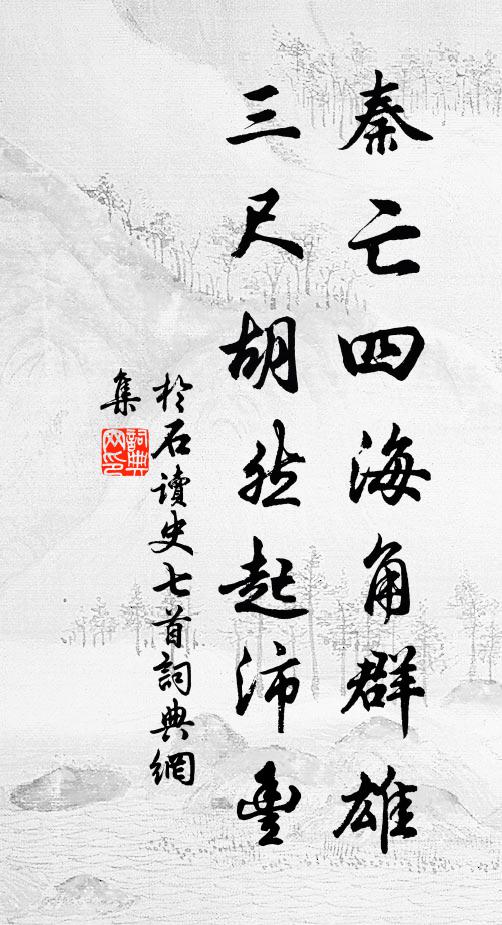 秦亡四海角群雄
三尺胡然起沛豐
於石讀史七首詞典網
集
詞典
网印